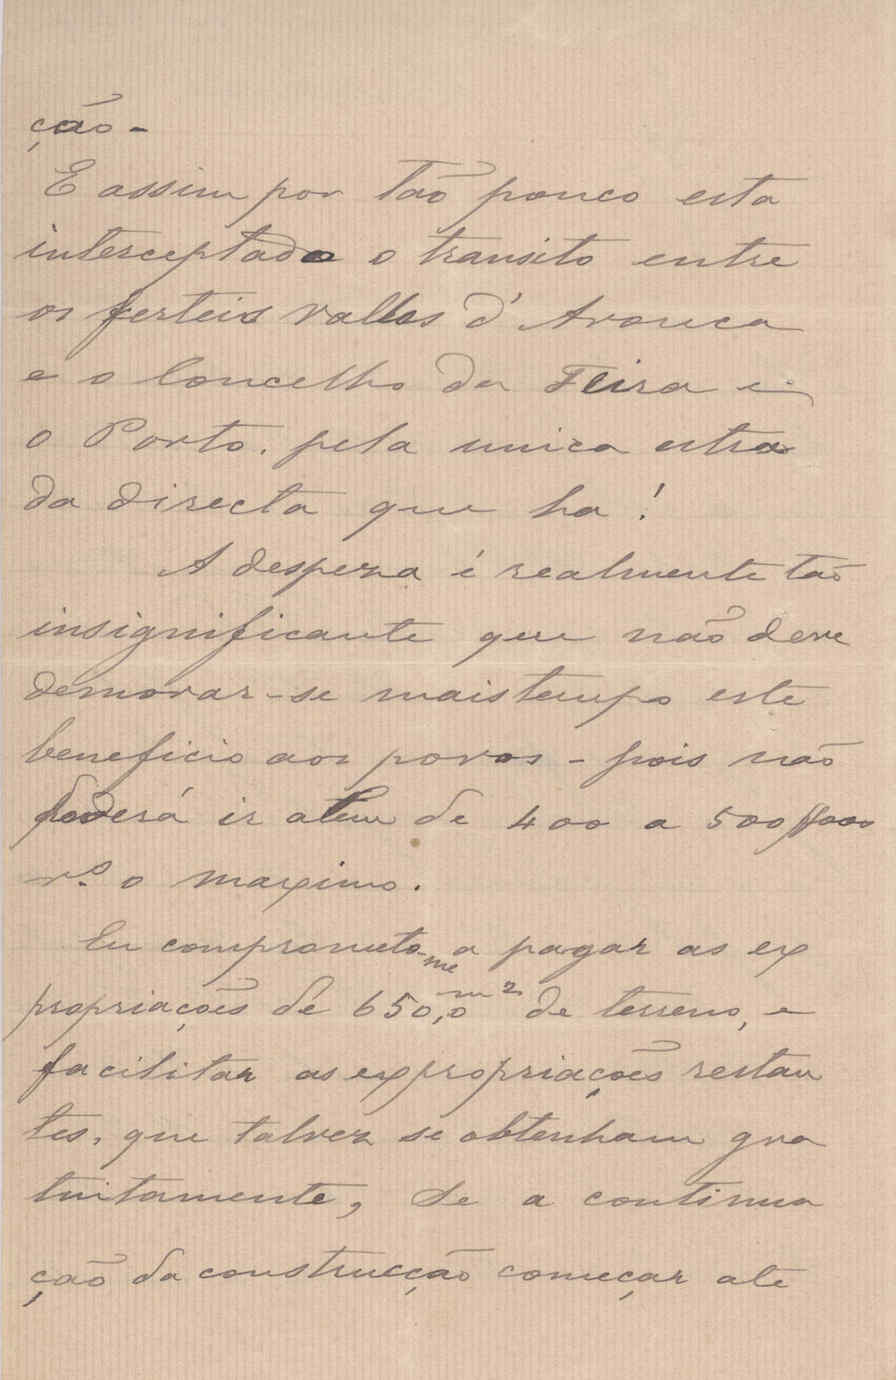 ção -
E assim por tão pouco esta
interceptado o transito entre
os ferteis valles d'Arouca
e o Concelho da Feira e
o Porto, pela unica estra
da directa que ha!
A despeza é realmente tão
insignificante que não deve
demorar-se mais tempo este
beneficio aos povos - pois não
poderá ir alem de 400 a 500$000
rs. o maximo.
Eu comprometo-me a pagar as ex
propriações de 650,0 m2 de terreno, e
facilitar as expropriações restan
tes, que talvez se obtenham gra
tuitamente, se a continua
ção da construcção começar até